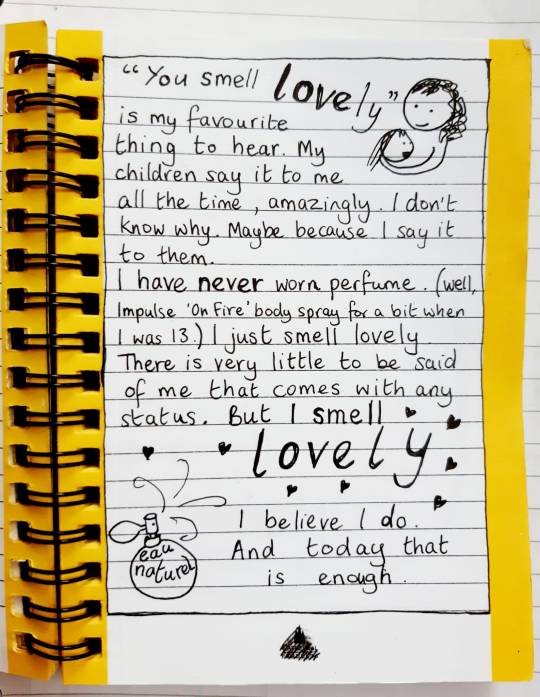 "You smell lovely"
is my favourite
thing to hear. My
children say it to me
all the time, amazingly. I don't
know why. Maybe because I say it
to them.
I have never worn perfume. (well,
Impulse 'On Fire' body spray for a bit when
I was 13.) I just smell lovely.
There is very little to be said
of me that comes with any
status. But I smell
lovely.
I believe I do.
And today that
is enough.
eau
naturel